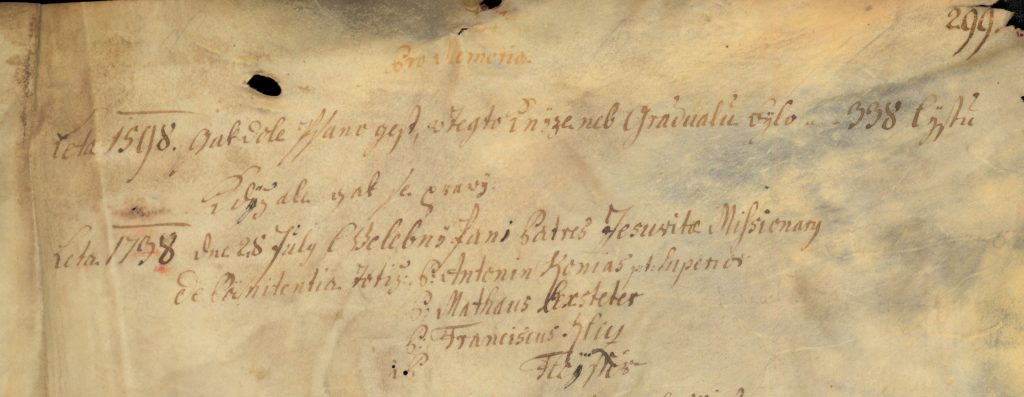 299.
Pro Memoria.
Leta 1598. Gak dole Psano gest, w tegto Knize neb Graduálu bylo .. 338 lystů
Když ale gak se prawý.
Leta 1738 dne 28 July Welebný Páni Patres Jesuvitæ Missionary
de Pœnitentia totiž: P. Antonin Konias pt. Superior
P. Mathaus Exsteter
P. Franciscus
P.